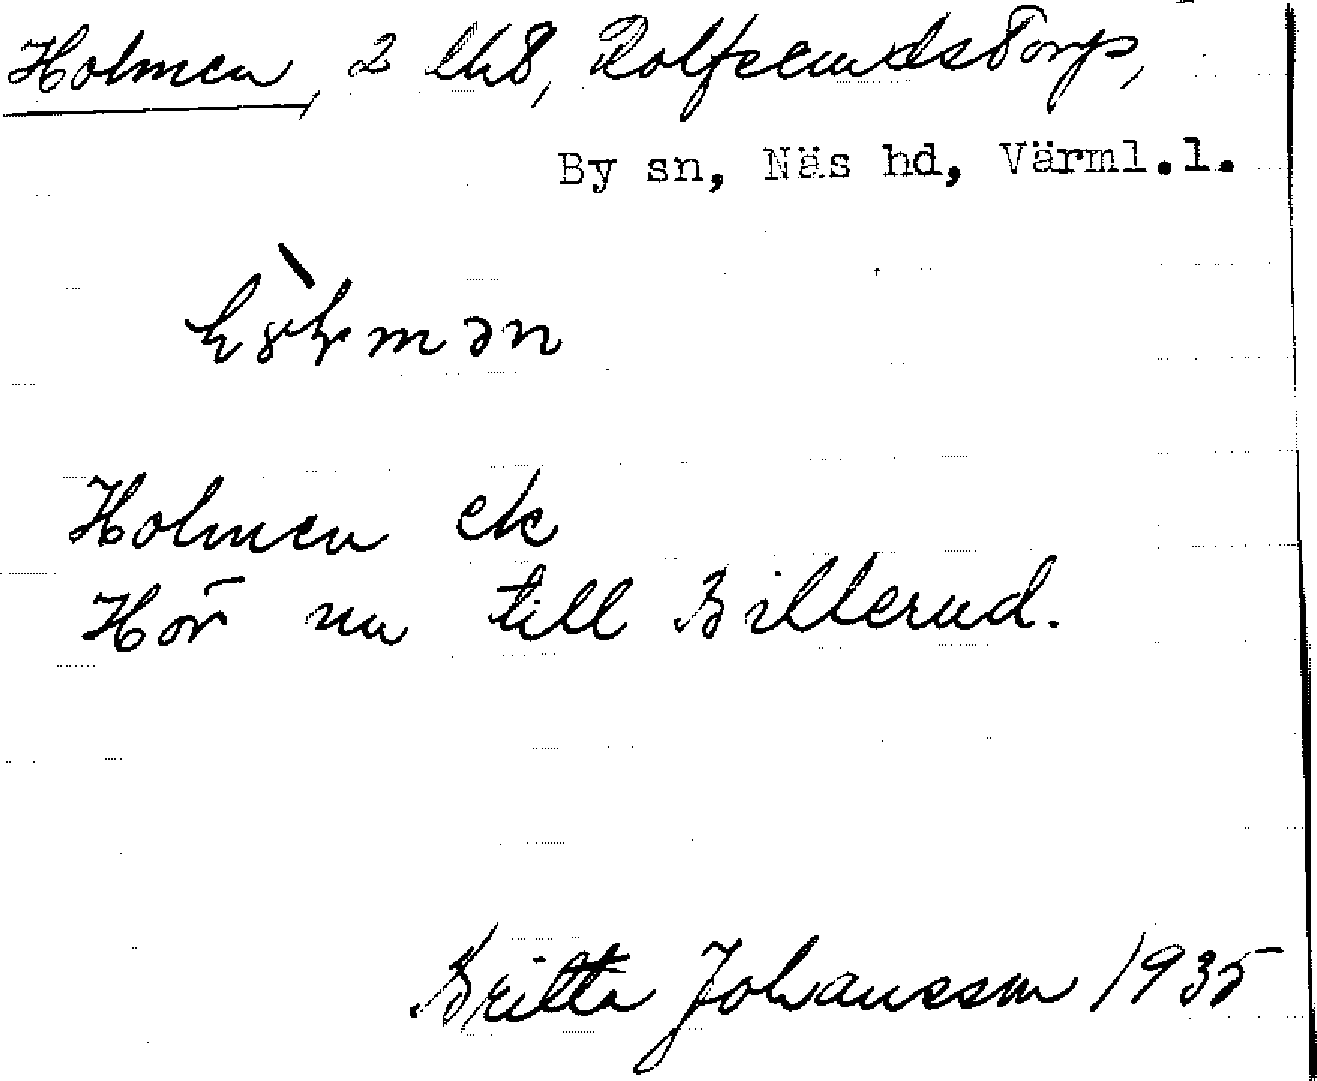 Holmen, 2 lht, Rolfserudstorp,
By sn, Näs hd, Värml.l.
Holmen ek
Hör nu till Billerud.
Britta Johansson 1935